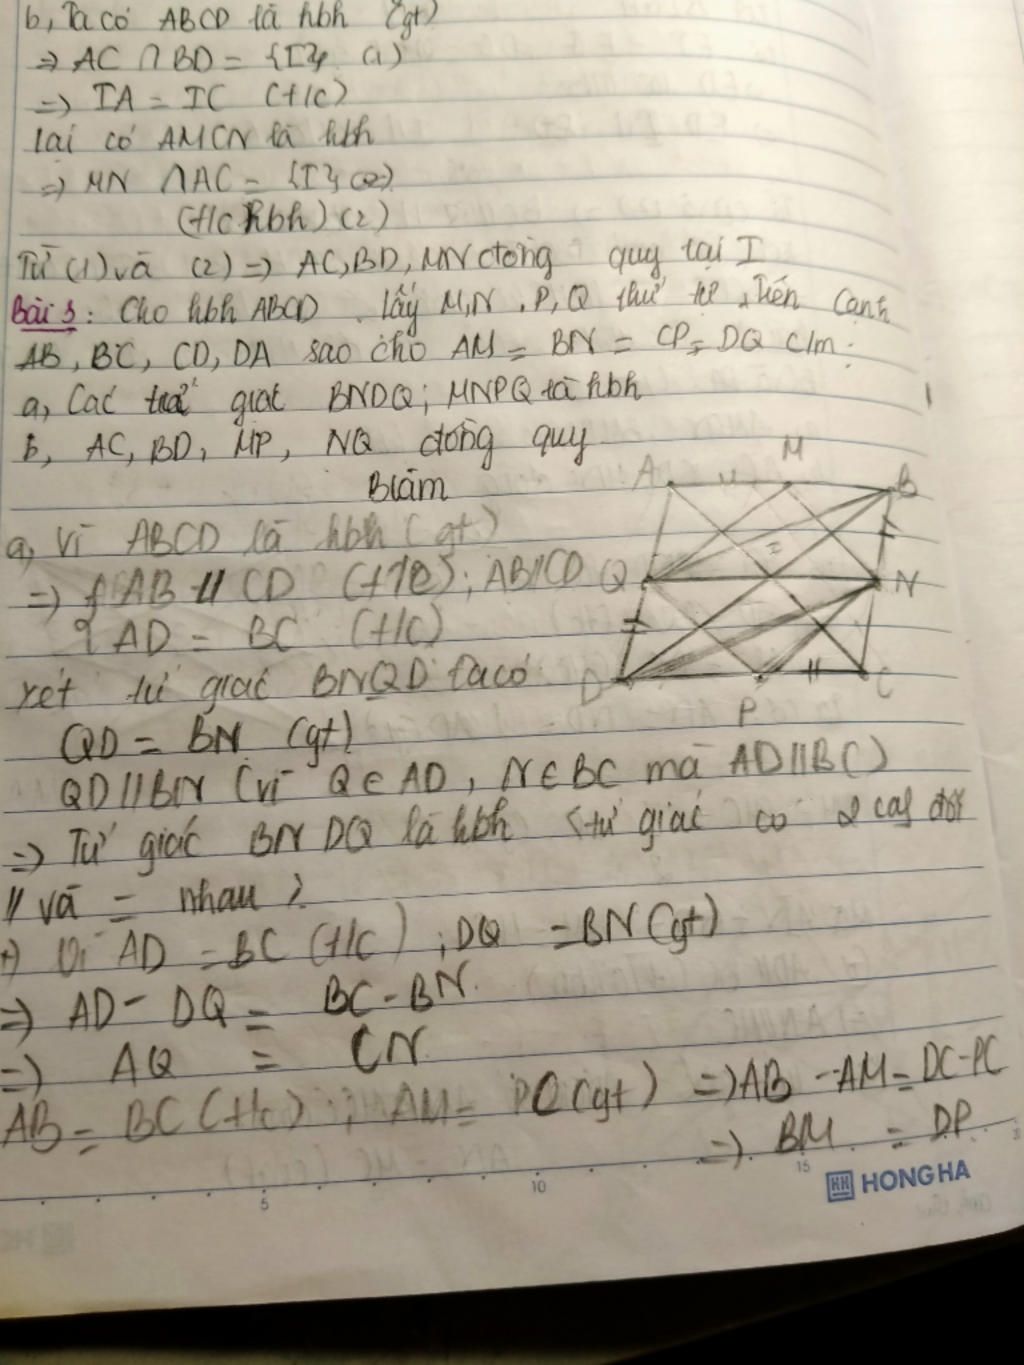 b, Ta có ABCD là hbh (gt)
=> AC ∩ BD = {I} (1)
=> IA = IC (t/c)
lại có AMCN là hbh
=> MN ∩ AC = {I} (2)
(t/c hbh) (2)
Từ (1) và (2) => AC, BD, MN đồng quy tại I
Bài 3: Cho hbh ABCD lấy M, N, P, Q thứ tự trên cạnh
AB, BC, CD, DA sao cho AM = BN = CP = DQ c/m:
a, Các tứ giác BNDQ; MNPQ là hbh
b, AC, BD, MP, NQ đồng quy
Blàm
A M B
a, Vì ABCD là hbh (gt)
=> { AB // CD (t/c); AB//CD
Q N
AD = BC (t/c)
xét tứ giác BNQD ta có
D P C
QD = BN (gt)
QD // BN (vì Q ∈ AD, N ∈ BC mà AD // BC)
=> Tứ giác BNDQ là hbh (tứ giác có 2 cạ đối
// và = nhau)
+) Vì AD = BC (t/c); DQ = BN (gt)
=> AD - DQ = BC - BN
=> AQ = CN
AB = BC (t/c); AM = PC (gt) => AB - AM = DC - PC
=> BM = DP
5 10 15
HH HONG HA